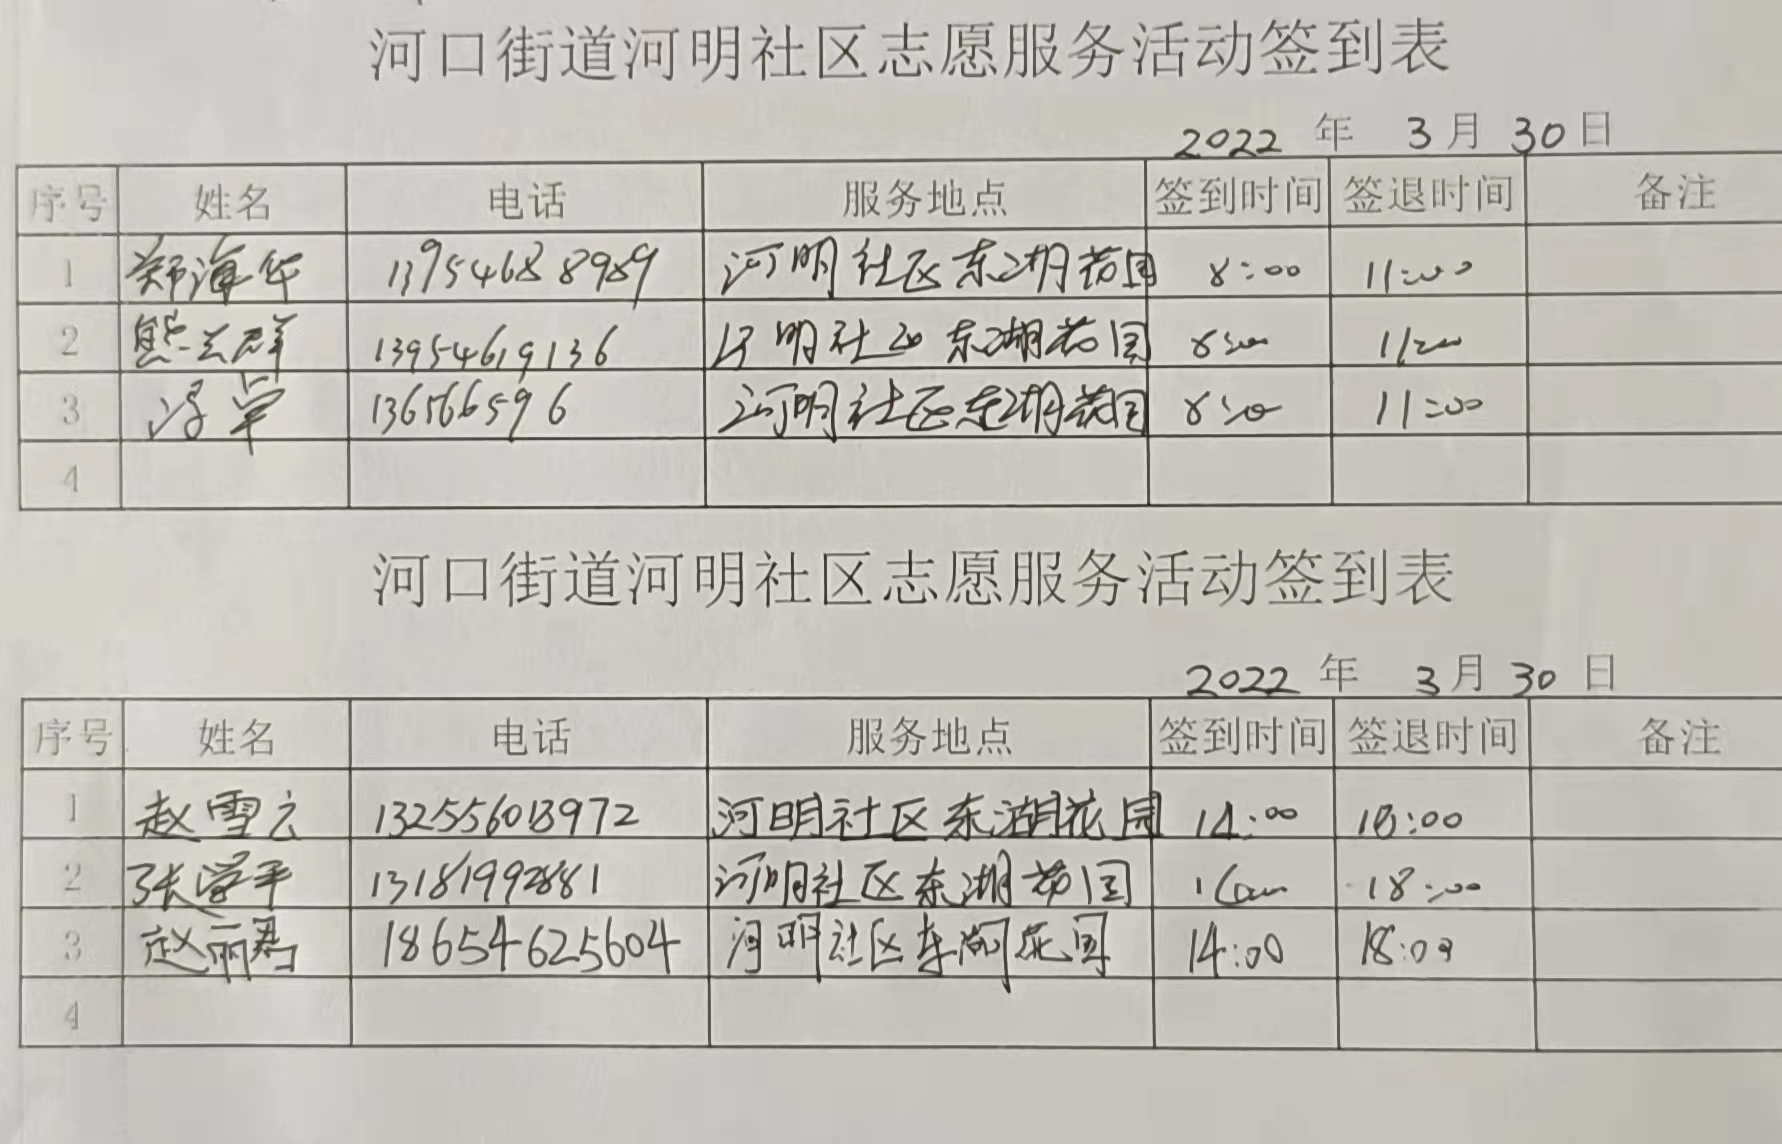 河口街道河明社区志愿服务活动签到表
2022 年 3月 30日
序号 姓名 电话 服务地点 签到时间 签退时间 备注
1 郑海华 13954688989 河明社区东湖花园 8:00 11:00
2 熊兰群 13954619136 河明社区东湖花园 8:00 11:00
3 河明社区东湖花园 8:00 11:00
4
河口街道河明社区志愿服务活动签到表
2022 年 3月 30 日
序号 姓名 电话 服务地点 签到时间 签退时间 备注
1 赵雪云 河明社区东湖花园 14:00 18:00
2 张学平 13181992881 河明社区东湖花园 18:00
3 赵丽君 18654625604 河明社区东湖花园 14:00 18:00
4